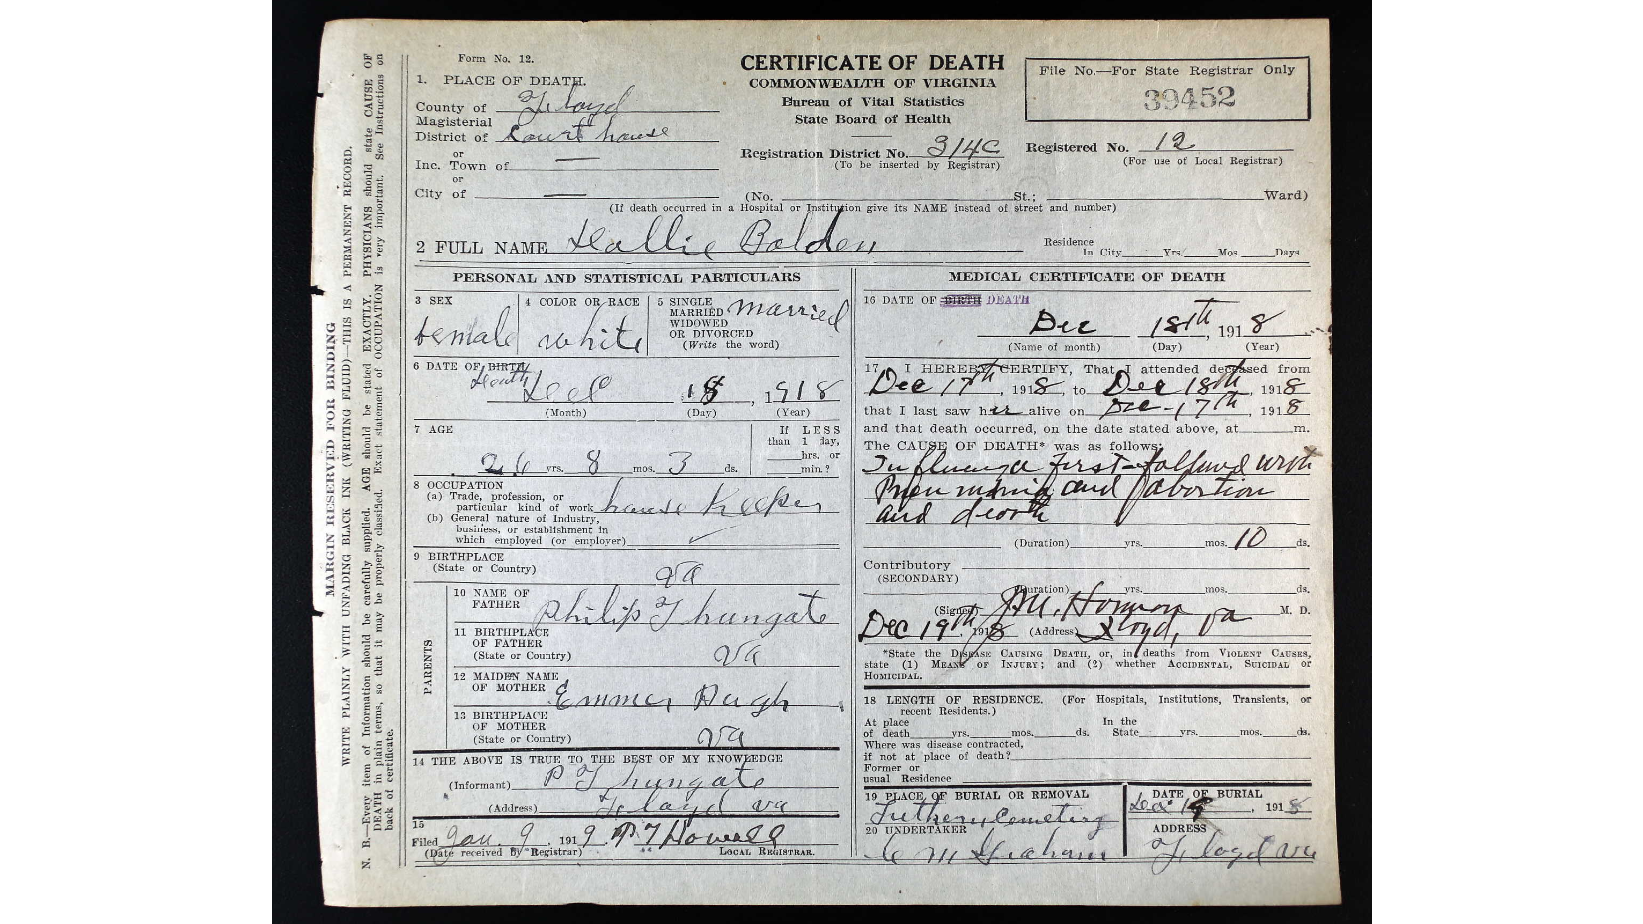 Form No. 12.
CERTIFICATE OF DEATH
COMMONWEALTH OF VIRGINIA
Bureau of Vital Statistics
State Board of Health
File No.—For State Registrar Only
39452
1. PLACE OF DEATH.
County of Floyd
Magisterial
District of Court house
or
Inc. Town of —
or
City of —
Registration District No. 314C
(To be inserted by Registrar)
Registered No. 12
(For use of Local Registrar)
(No. St.; Ward)
(If death occurred in a Hospital or Institution give its NAME instead of street and number)
2 FULL NAME Hallie Bolden
Residence
In City Yrs. Mos Days
PERSONAL AND STATISTICAL PARTICULARS
3 SEX
female
4 COLOR OR RACE
white
5 SINGLE
MARRIED
WIDOWED
OR DIVORCED
(Write the word)
married
6 DATE OF BIRTH
death
Dec 18, 1918
(Month) (Day) (Year)
7 AGE
26 yrs. 8 mos. 3 ds.
If LESS
than 1 day,
hrs. or
min.?
8 OCCUPATION
(a) Trade, profession, or
particular kind of work house keeper
(b) General nature of Industry,
business, or establishment in
which employed (or employer)
9 BIRTHPLACE
(State or Country)
Va
PARENTS
10 NAME OF
FATHER
Philip T hungate
11 BIRTHPLACE
OF FATHER
(State or Country)
Va
12 MAIDEN NAME
OF MOTHER
Emma Pugh
13 BIRTHPLACE
OF MOTHER
(State or Country)
Va
14 THE ABOVE IS TRUE TO THE BEST OF MY KNOWLEDGE
(Informant) P T hungate
(Address) Floyd va
15
Filed Jan. 9, 1919 Howell
(Date received by Registrar) LOCAL REGISTRAR.
MEDICAL CERTIFICATE OF DEATH
16 DATE OF BIRTH DEATH
Dec 18th, 1918
(Name of month) (Day) (Year)
17 I HEREBY CERTIFY, That I attended deceased from
Dec 17th, 1918, to Dec 18th, 1918
that I last saw her alive on Dec-17th, 1918
and that death occurred, on the date stated above, at m.
The CAUSE OF DEATH* was as follows:
Influenza first-followed with
and abortion
and death
(Duration) yrs. mos. 10 ds.
Contributory
(SECONDARY)
(Duration) yrs. mos. ds.
(Signed) M. D.
Dec 19th, 1918 (Address) Floyd, Va
*State the DISEASE CAUSING DEATH, or, in deaths from VIOLENT CAUSES,
state (1) MEANS OF INJURY; and (2) whether ACCIDENTAL, SUICIDAL or
HOMICIDAL.
18 LENGTH OF RESIDENCE. (For Hospitals, Institutions, Transients, or
recent Residents.)
At place
of death yrs. mos. ds.
In the
State yrs. mos. ds.
Where was disease contracted,
if not at place of death?
Former or
usual Residence
19 PLACE OF BURIAL OR REMOVAL
Cemetery
DATE OF BURIAL
Dec 19, 1918
20 UNDERTAKER
C M Graham
ADDRESS
Floyd va
MARGIN RESERVED FOR BINDING
WRITE PLAINLY WITH UNFADING BLACK INK (WRITING FLUID)—THIS IS A PERMANENT RECORD.
N. B.—Every item of Information should be carefully supplied. AGE should be stated EXACTLY. PHYSICIANS should state CAUSE OF
DEATH in plain terms, so that it may be properly classified. Exact statement of OCCUPATION is very important. See Instructions on
back of certificate.